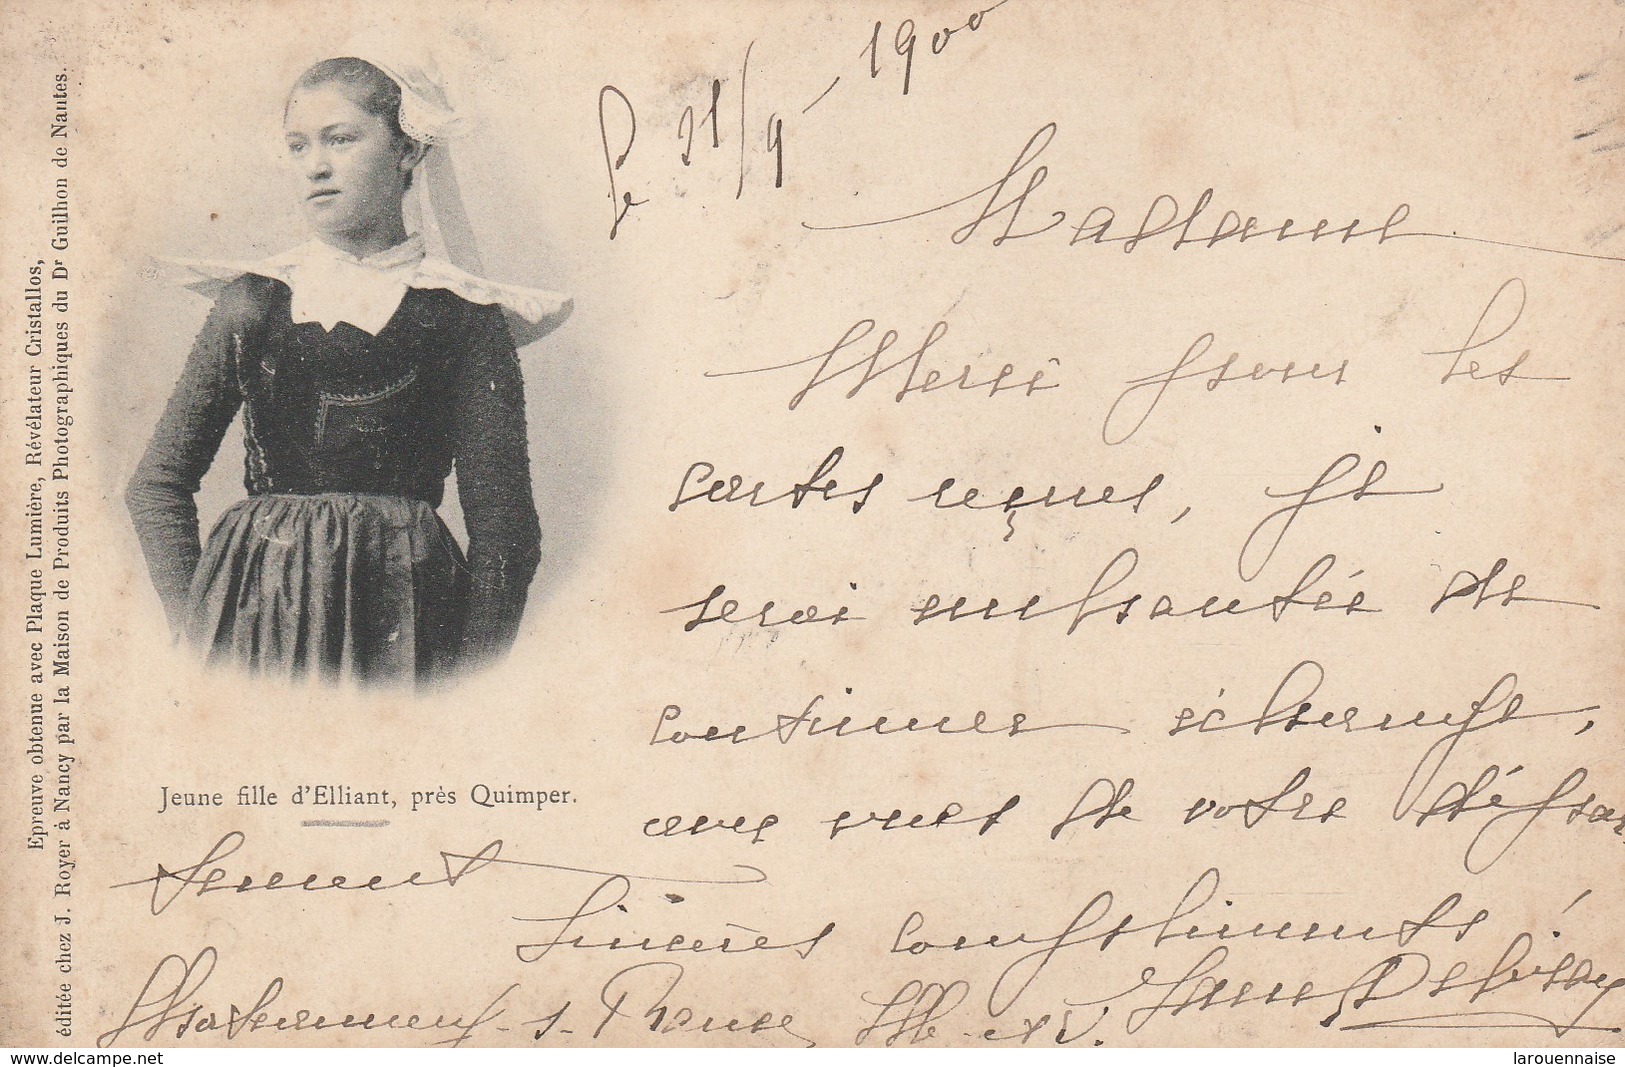 Epreuve obtenue avec Plaque Lumière, Révélateur Cristallos,
éditée chez J. Royer à Nancy par la Maison de Produits Photographiques du Dr Guilhon de Nantes.
Le 21/9 - 1900
Madame
Merci pour les
cartes reçues, je
serai enchantée de
continuer échange,
avec vues de votre dépar
tement
Sincères compliments !
Jeune fille d'Elliant, près Quimper.
Châteauneuf-s-Rance, Ille-et-V.
Delcampe.net
larouennaise